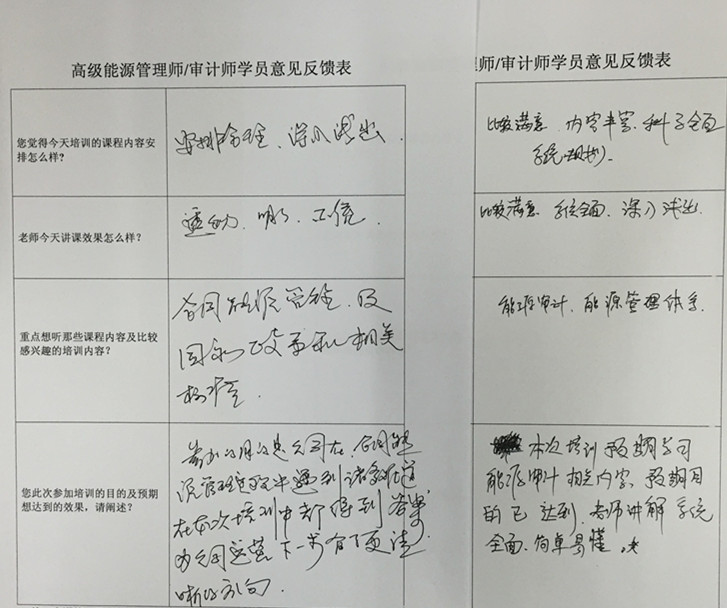 高级能源管理师/审计师学员意见反馈表
您觉得今天培训的课程内容安
排怎么样?
安排合理、深入浅出.
老师今天讲课效果怎么样?
透切. 明了. 正确.
重点想听那些课程内容及比较
感兴趣的培训内容?
合同能源管理. 及
国家政策和相关
标准
您此次参加培训的目的及预期
想达到的效果,请阐述?
参加的目的是公司在合同能
源管理过程中遇到诸多问题
在本次培训中都得到答案
为公司运营下一步有了更清
晰的方向.
理师/审计师学员意见反馈表
比较满意. 内容丰富. 科学全面
系统规划.
比较满意. 系统全面. 深入浅出.
能源审计. 能源管理体系.
本次培训预期学习
能源审计相关内容. 预期目
的已达到. 老师讲解系统
全面. 简单易懂.